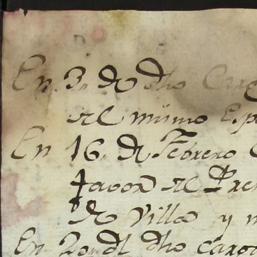 En 3. de dho Carg
el mismo Esp
En 16. de Febrero
favor el Pre
de Villa y m
En 20 del dho cargo